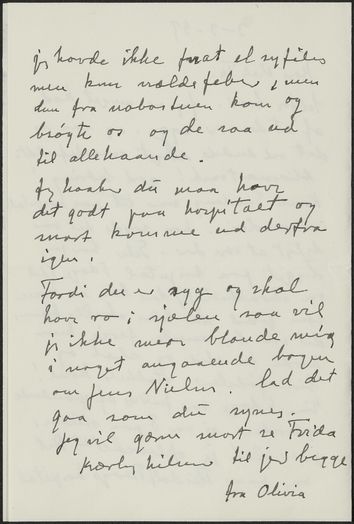 jeg havde ikke faaet el syfiles
men kun nældefeber, men
den fra nabostuen kom og
besøgte os og de saa ud
til allehaande.
Jeg haaber du maa have
det godt paa hospitalet og
snart komme ud derfra
igen.
Fordi du er syge og skal
have ro i sjælen saa vil
jeg ikke mere blande mig
i noget angaaende bogen
om Jens Nielsen. lad det
gaa som du synes.
Jeg vil gærne snart se Frida
Kærlig hilsen til jer begge
fra Olivia